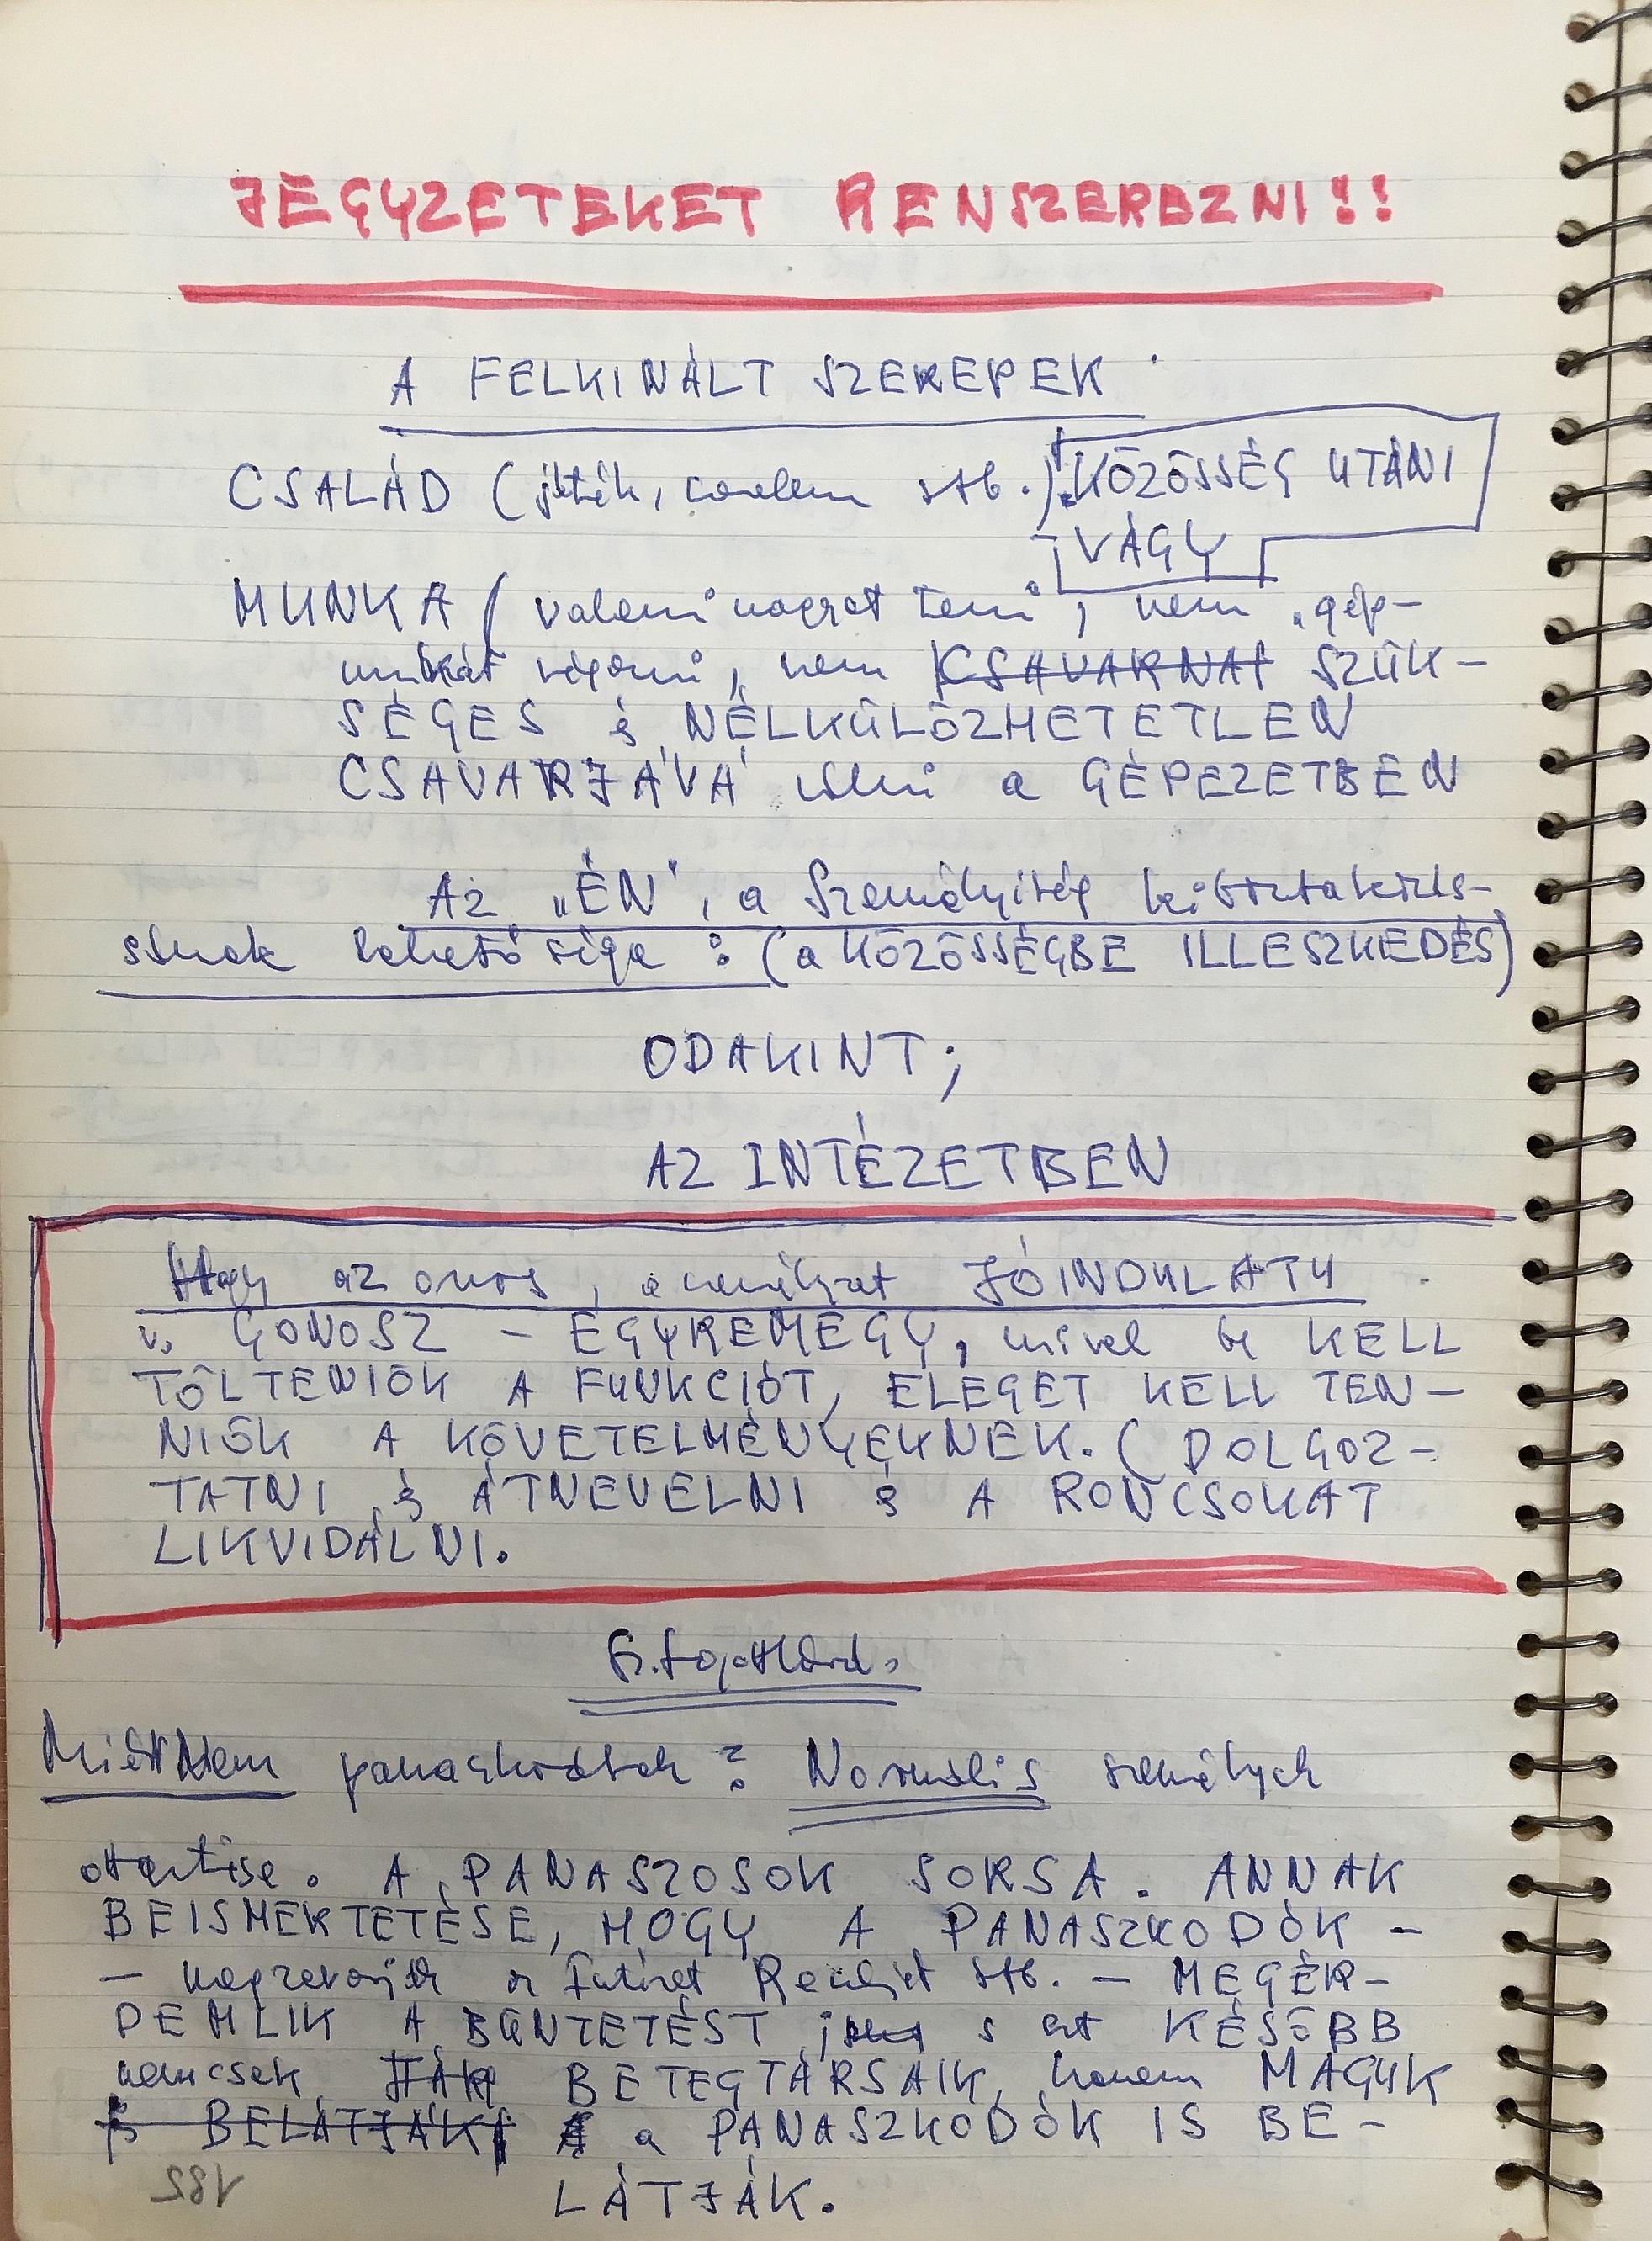 JEGYZETEKET RENSZEREZNI!!
A FELKINÁLT SZEREPEK
CSALÁD (játék, szerelem stb.) KÖZÖSSÉG UTÁNI
VÁGY
MUNKA ( valami nagyot tenni, nem „gép-
munkát végezni, nem CSAVARNAK SZÜK-
SÉGES és NÉLKÜLÖZHETETLEN
CSAVARJÁVÁ válni a GÉPEZETBEN
Az „ÉN", a személyiség kibontakozá-
sának lehetősége: (a KÖZÖSSÉGBE ILLESZKEDÉS)
ODAKINT;
AZ INTÉZETBEN
Hogy az orvos, a személyzet JÓINDULATU
v. GONOSZ - EGYREMEGY, mivel be KELL
TÖLTENIÖK A FUNKCIÓT, ELEGET KELL TEN-
NIÖK A KÖVETELMÉNYEKNEK. (DOLGOZ-
TATNI és ÁTNEVELNI és A RONCSOKAT
LIKVIDÁLNI.
Miért Nem panaszkodtak? Normális személyek
A PANASZOSOK SORSA. ANNAK
BEISMERTETÉSE, HOGY A PANASZKODÓK -
- stb. - MEGÉR-
DEMLIK A BÜNTETÉST s ezt KÉSÖBB
nemcsak BETEGTÁRSAIK, hanem MAGUK
és BELÁTJÁK a PANASZKODÓK IS BE-
LÁTJÁK.
182